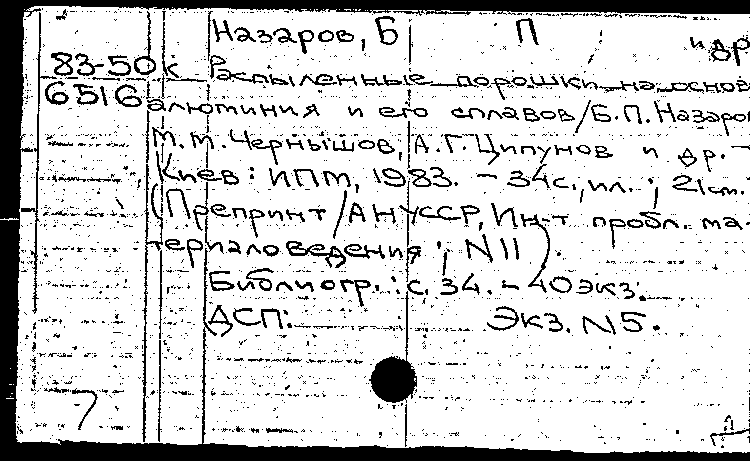 Назаров, Б П и др
83-50к Распыленные порошки на основ
6516 алюминия и его сплавов/Б.П. Назаро
М.М. Чернышов, А.Г. Ципунов и др. –
Киев: ИПМ, 1983. – 34с., ил.; 21см.
(Препринт/АН УССР, Ин-т пробл. ма-
териаловедения; N11).
Библиогр.: с. 34. – 40экз.
ДСП: Экз. N5.
7